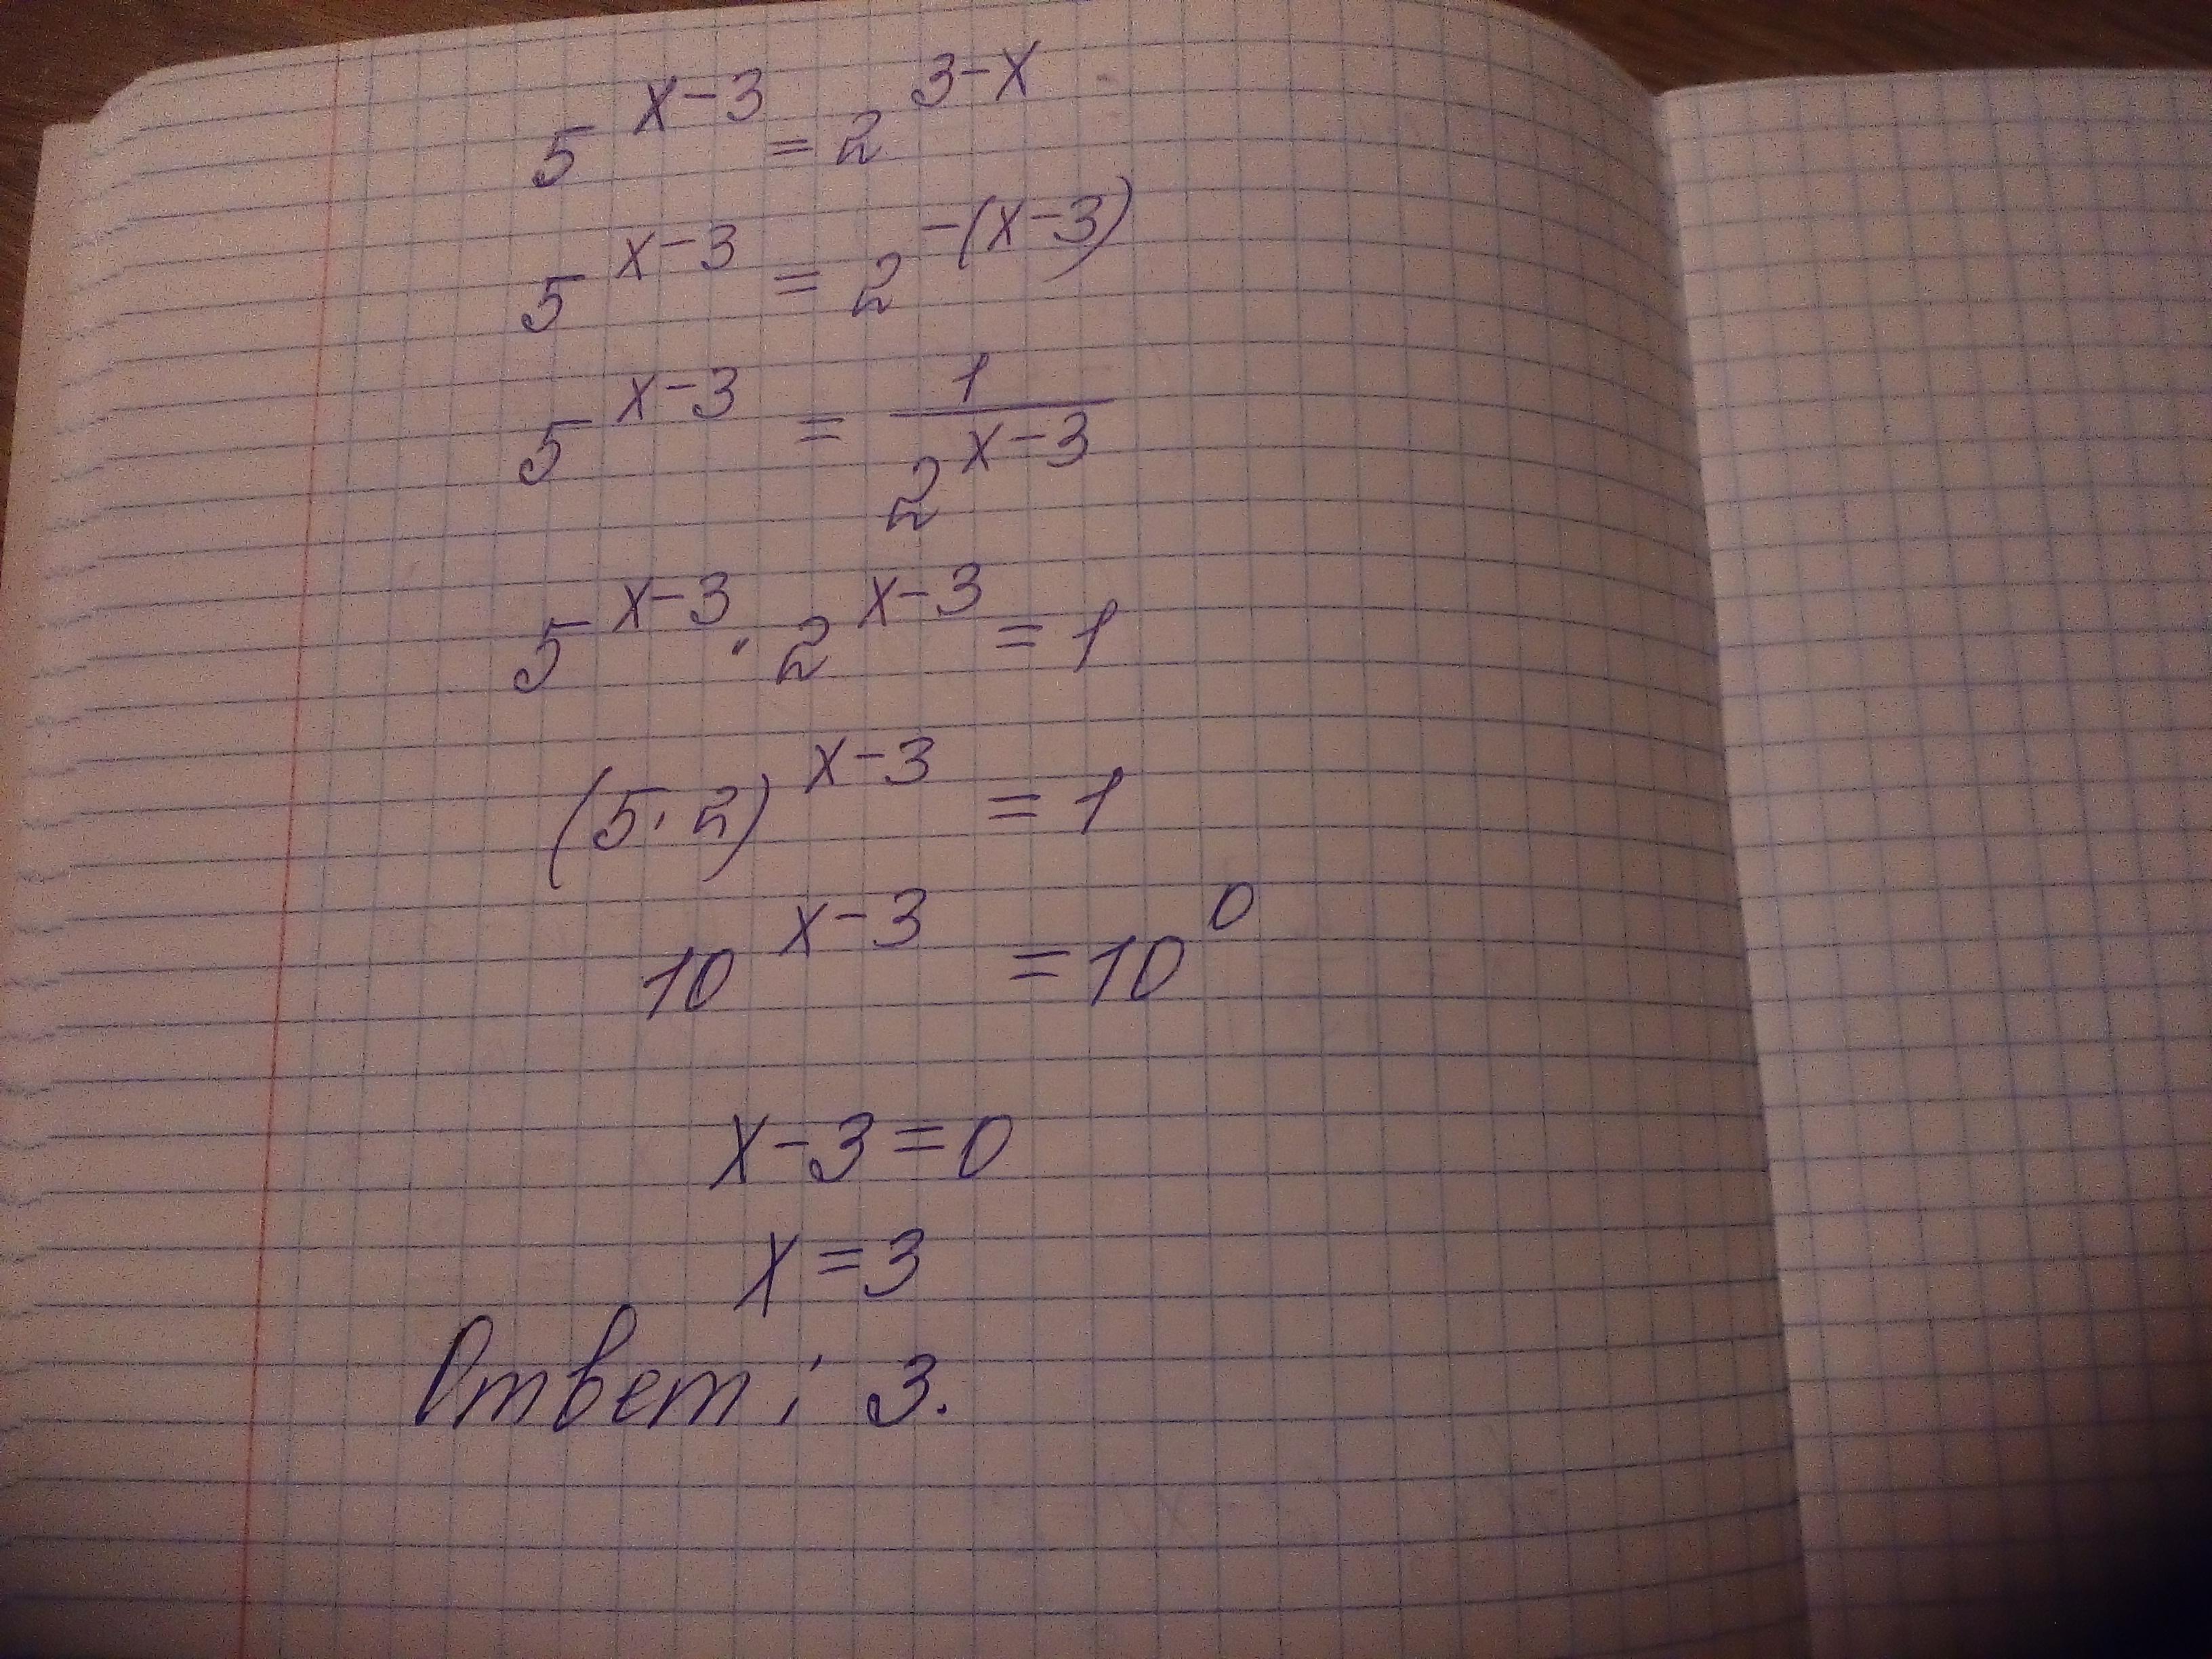 5^{x-3} = 2^{3-x}
5^{x-3} = 2^{-(x-3)}
5^{x-3} = \frac{1}{2^{x-3}}
5^{x-3} · 2^{x-3} = 1
(5·2)^{x-3} = 1
10^{x-3} = 10^{0}
x-3=0
x=3
Ответ: 3.